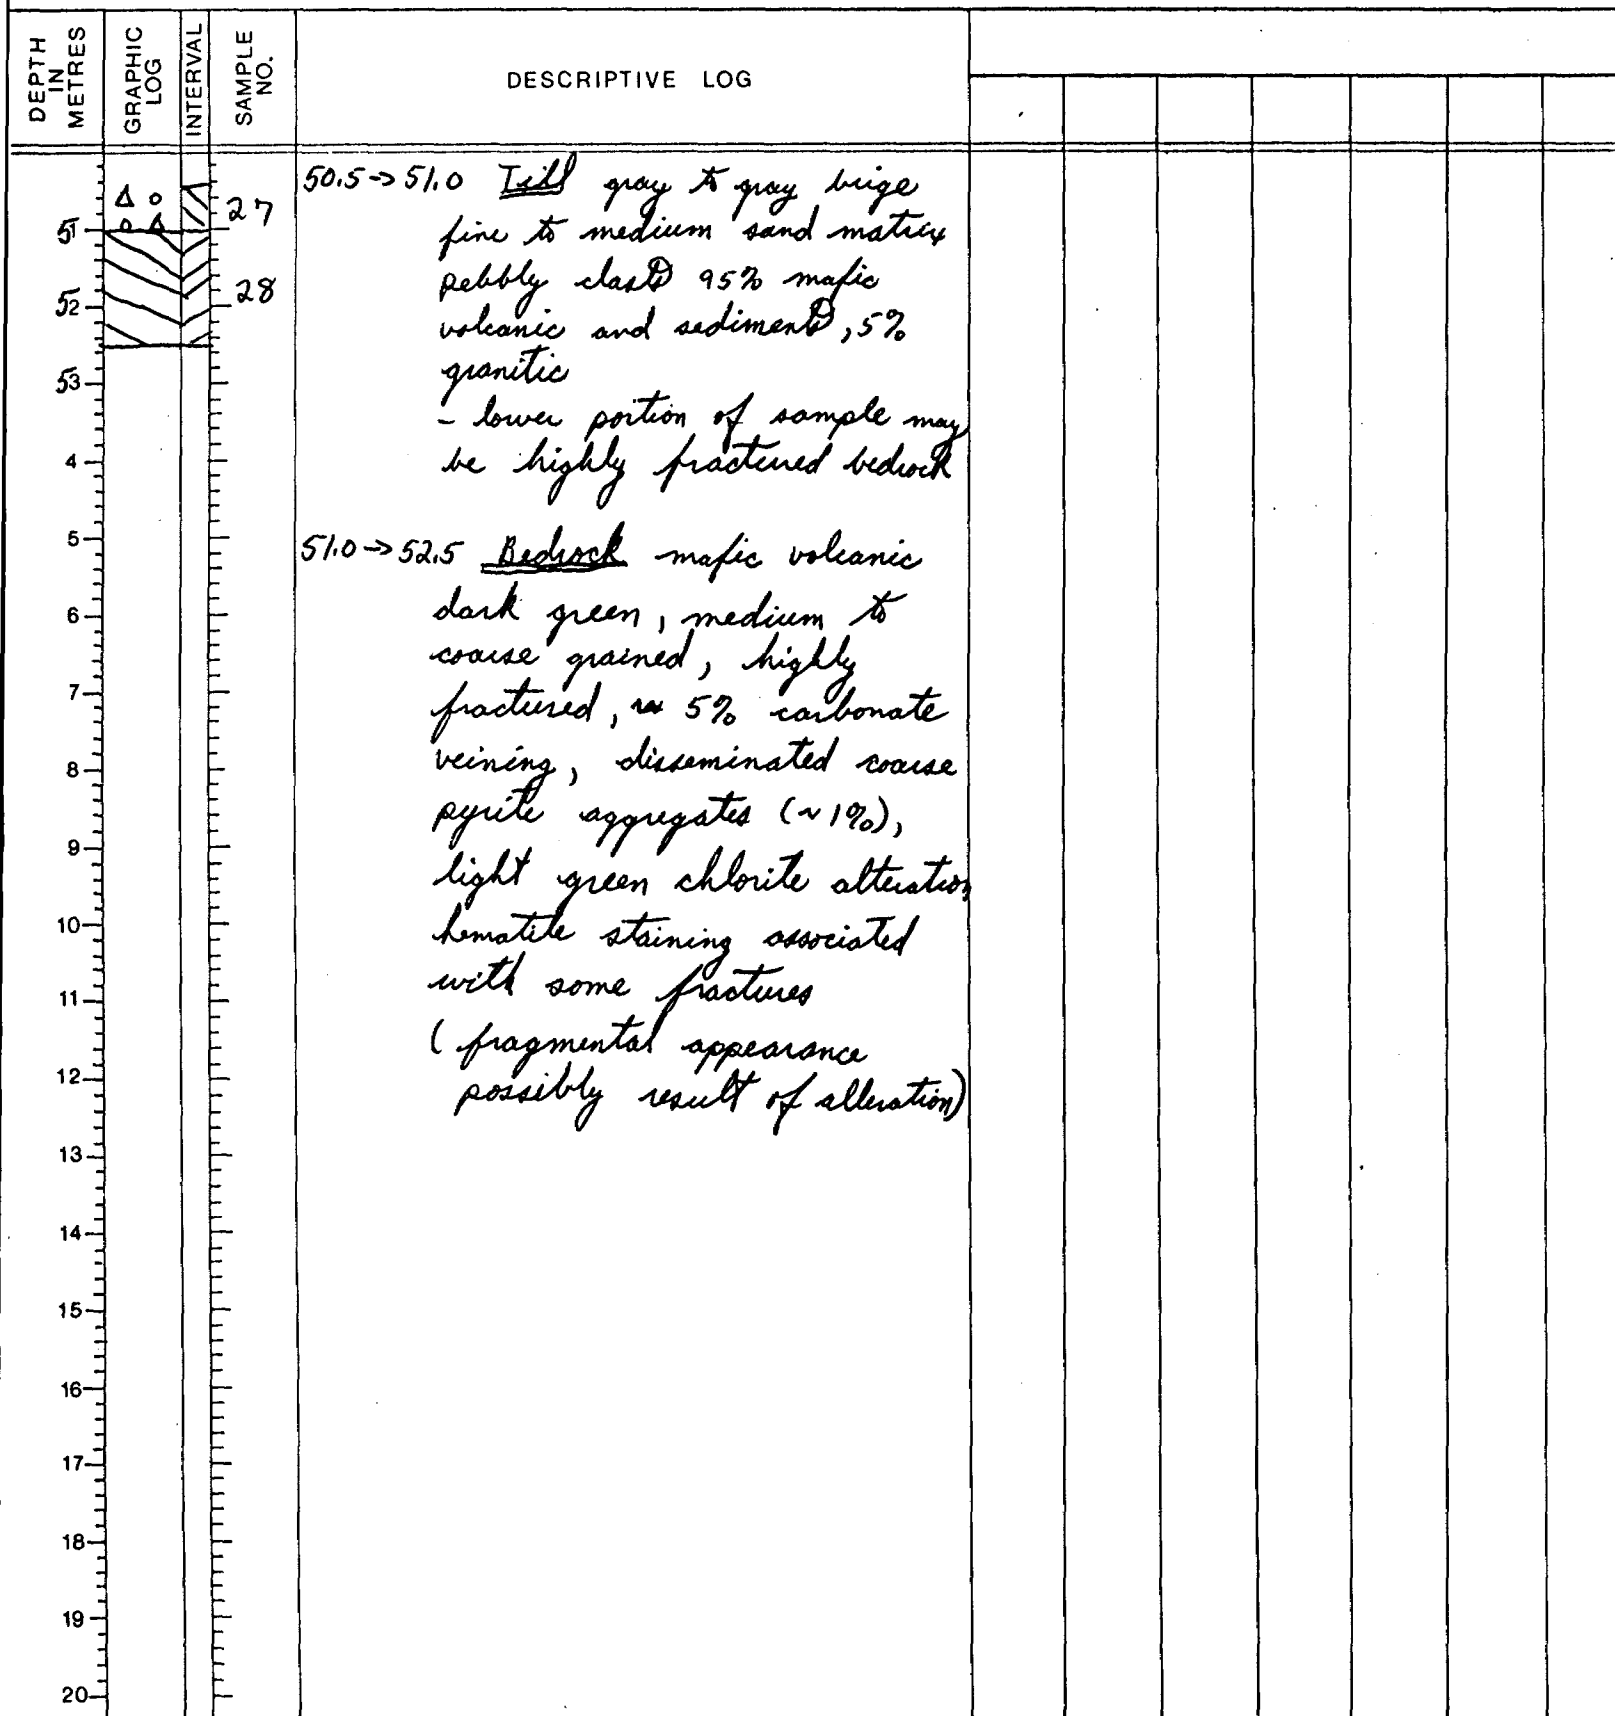 DEPTH IN METRES
GRAPHIC LOG
INTERVAL
SAMPLE NO.
DESCRIPTIVE LOG
50.5->51.0 Till gray to gray beige
27
fine to medium sand matrix
51
pebbly clasts 95% mafic
28
52
volcanic and sediments, 5%
granitic
53
- lower portion of sample may
be highly fractured bedrock
4
5
51.0->52.5 Bedrock mafic volcanic
dark green, medium to
6
coarse grained, highly
7
fractured, ~ 5% carbonate
veining, disseminated coarse
8
pyrite aggregates (~1%),
9
light green chlorite alteration
10
hematite staining associated
with some fractures
11
(fragmental appearance
12
possibly result of alteration)
13
14
15
16
17
18
19
20